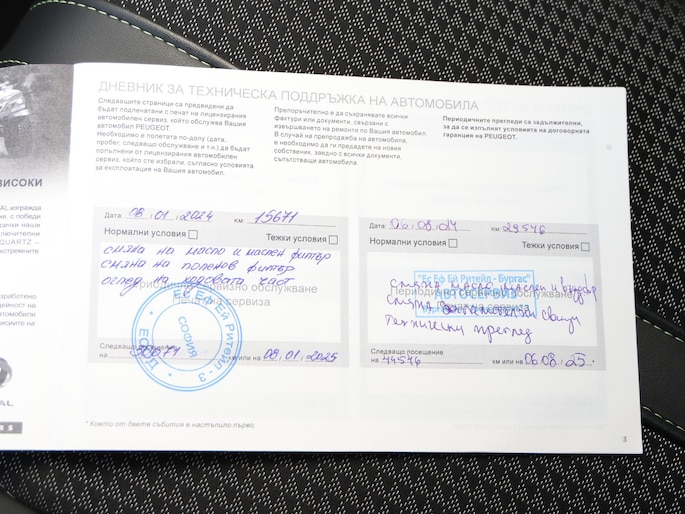 ДНЕВНИК ЗА ТЕХНИЧЕСКА ПОДДРЪЖКА НА АВТОМОБИЛА
Следващите страници са предвидени да
бъдат подпечатани с печат на лицензирания
автомобилен сервиз, който обслужва Вашия
автомобил PEUGEOT
Необходимо е полетата по-долу (дата,
пробег, следващо обслужване и т.н.) да бъдат
попълнени от лицензирания автомобилен
сервиз, който сте избрали, съгласно условията
за експлоатация на Вашия автомобил.
Препоръчително е да съхранявате всички
фактури или документи, свързани с
извършването на ремонти по Вашия автомобил.
В случай на препродажба на автомобила,
е необходимо да ги предадете на новия
собственик, заедно с всички документи,
съпътстващи автомобила.
Периодичните прегледи са задължителни,
за да се изпълнят условията на договорната
гаранция на PEUGEOT.
Дата 08.01.2024 км 15671
Нормални условия Тежки условия
смяна на масло и маслен филтър
смяна на поленов филтър
оглед на ходовата част
Периодично сервизно обслужване
Печат на сервиза
Ес Еф Ей Ритейл - 3
СОФИЯ
ЕООД
Следващо посещение
на 30671 км или на 08.01.2025
Дата 06.08. км 29546
Нормални условия Тежки условия
"Ес Еф Ей Ритейл - Бургас"
АВТОСЕРВИЗ
смяна масло маслен и въздер
Периодично сервизно обслужване
смяна свещи
Технически преглед
Следващо посещение
на 44546 км или на 06.08.25.
* Което от двете събития е настъпило първо
3
ВИСОКИ
QUARTZ –